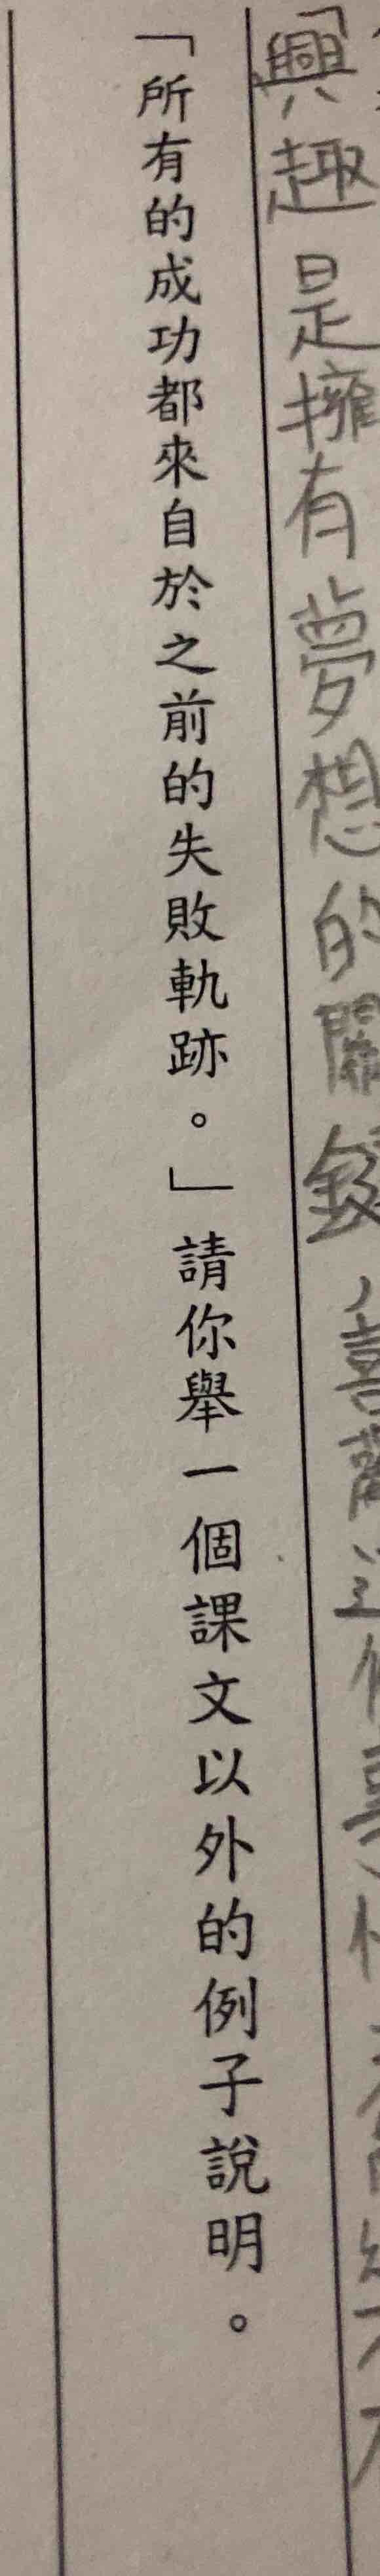 「興趣是擁有夢想的關鍵，喜歡這件事情才
「所有的成功都來自於之前的失敗軌跡。」請你舉一個課文以外的例子說明。